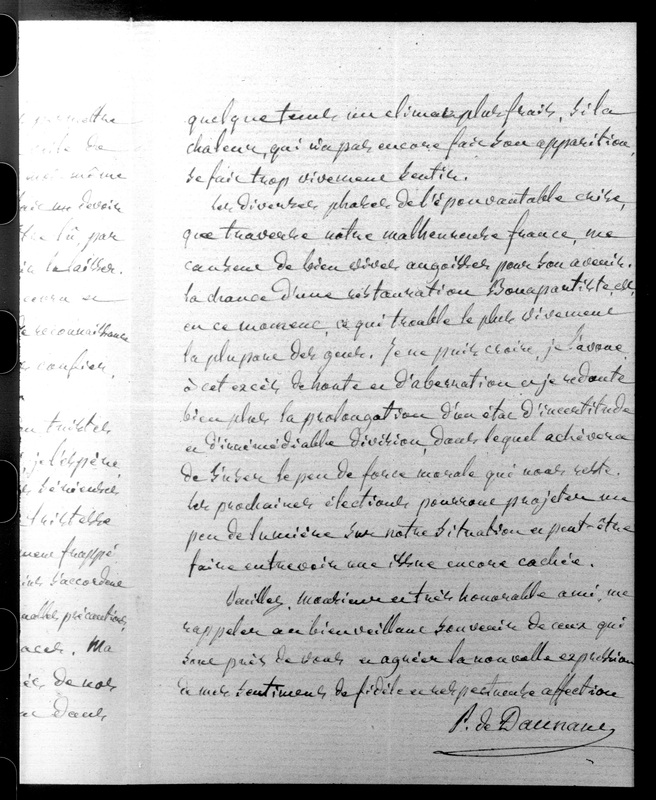 permettre
même
un devoir
là, par
le laisser.
en
reconnaissance
confier.
tristes
je l'espère,
sérieuses
tristesse
frappé
s'accordent
précautions,
Ma
de nos
dans
quelque temps un climat plus frais, si la
chaleur, qui n'a pas encore fait son apparition,
se fait trop vivement sentir.
Les diverses phases de l'épouvantable crise,
que traverse notre malheureuse france, me
causent de bien vives angoisses pour son avenir.
La chance d'une restauration Bonapartiste, est,
en ce moment, ce qui trouble le plus vivement
la plupart des gens. Je ne puis croire, je l'avoue,
à cet excès de honte et d'aberration et je redoute
bien plus la prolongation d'un état d'incertitude
et d'irrémédiable division, dans lequel achèvera
de s'user le peu de force morale qui nous reste.
Les prochaines élections pourront projeter un
peu de lumière sur notre situation et peut-être
faire entrevoir une issue encore cachée.
Veuillez, Monsieur et très honorable ami, me
rappeler au bienveillant souvenir de ceux qui
sont près de vous et agréer la nouvelle expression
de mes sentiments de fidèle et respectueuse affection
P. de Daunant